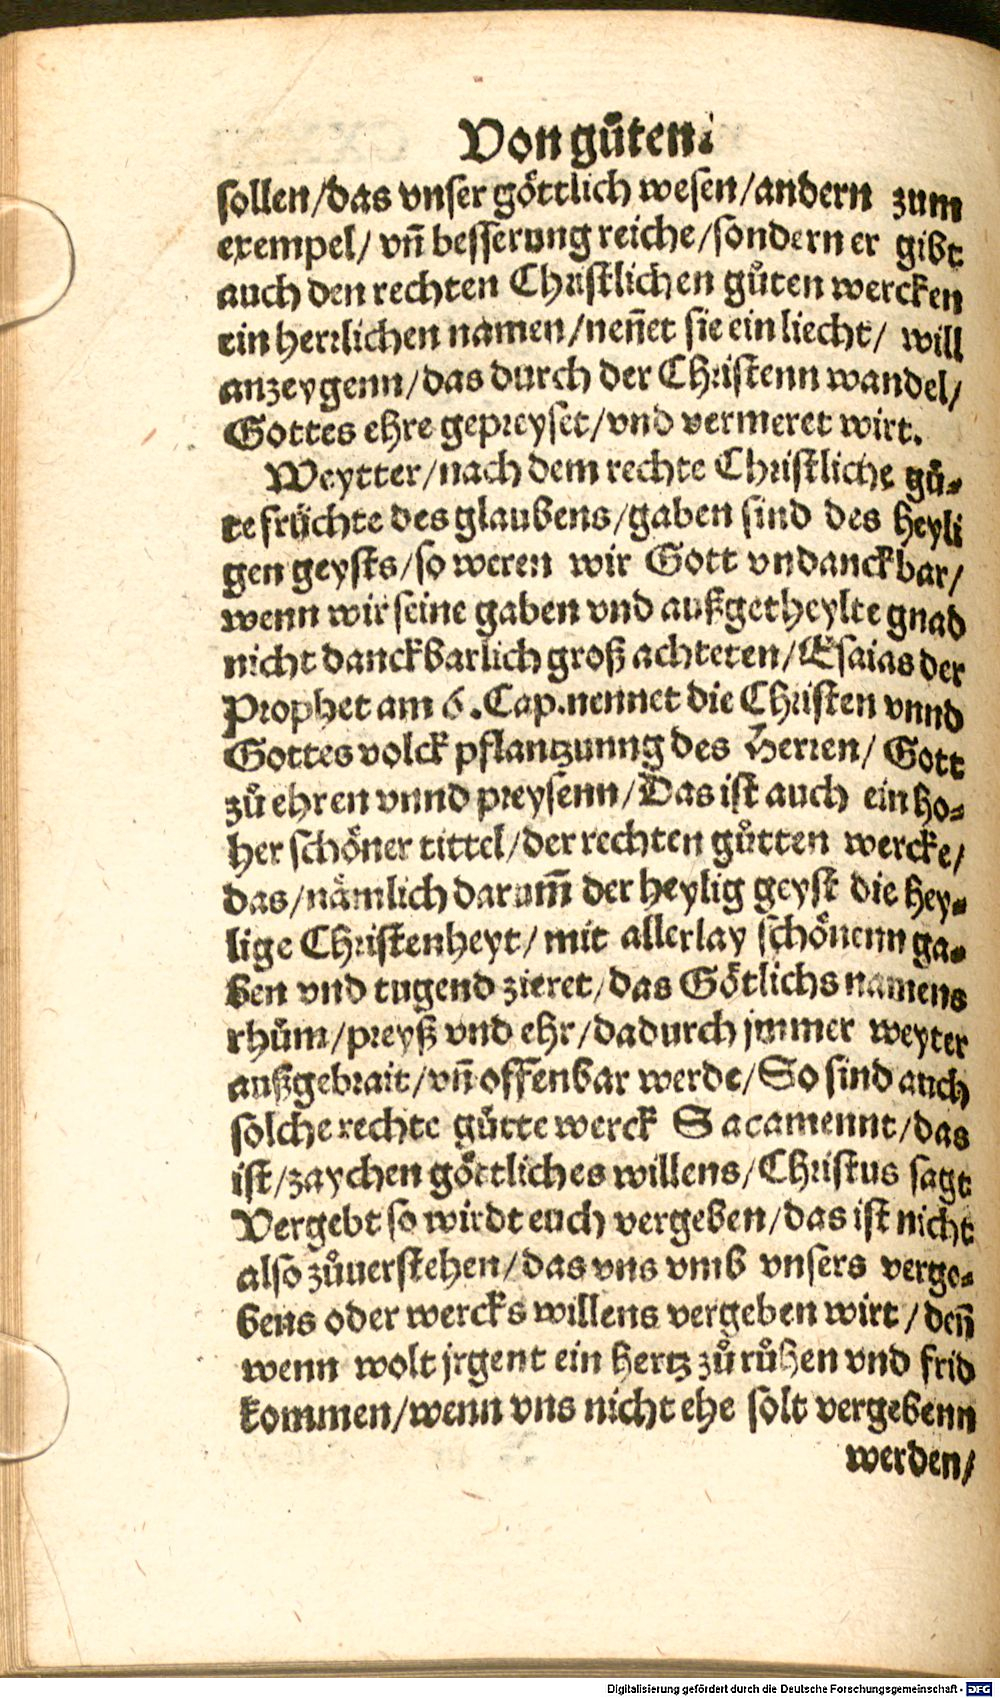 Von gůten.
sollen/das vnser göttlich wesen/andern zum
exempel/ vn̄ besserung reiche/sondern er gibt
auch den rechten Christlichen gůten wercken
ein herrlichen namen/nen̄et sie ein liecht/ will
anzeygenn/das durch der Christenn wandel/
Gottes ehre gepreyset/vnd vermeret wirt.
Weytter/nach dem rechte Christliche gů-
te früchte des glaubens/gaben sind des heyli
gen geysts/so weren wir Gott vndanckbar/
wenn wir seine gaben vnd außgetheylte gnad
nicht danckbarlich groß achteten/Esaias der
Prophet am 6.Cap.nennet die Christen vnnd
Gottes volck pflantzunng des Herren/ Gott
zů ehren vnnd preysenn/Das ist auch ein ho-
her schöner tittel/der rechten gůtten wercke/
das/nämlich darum̄ der heylig geyst die hey-
lige Christenheyt/ mit allerlay schönenn ga-
ben vnd tugend zieret/das Götlichs namens
rhům/preyß vnd ehr/dadurch jmmer weyter
außgebrait/vn̄ offenbar werde/So sind auch
solche rechte gůtte werck Sacamennt/das
ist/zaychen göttliches willens/Christus sagt
Vergebt so wirdt euch vergeben/das ist nicht
also zůuerstehen/das vns vmb vnsers verge-
bens oder wercks willens vergeben wirt/den̄
wenn wolt jrgent ein hertz zů růhen vnd frid
kommen/wenn vns nicht ehe solt vergebenn
werden/
Digitalisierung gefördert durch die Deutsche Forschungsgemeinschaft - DFG